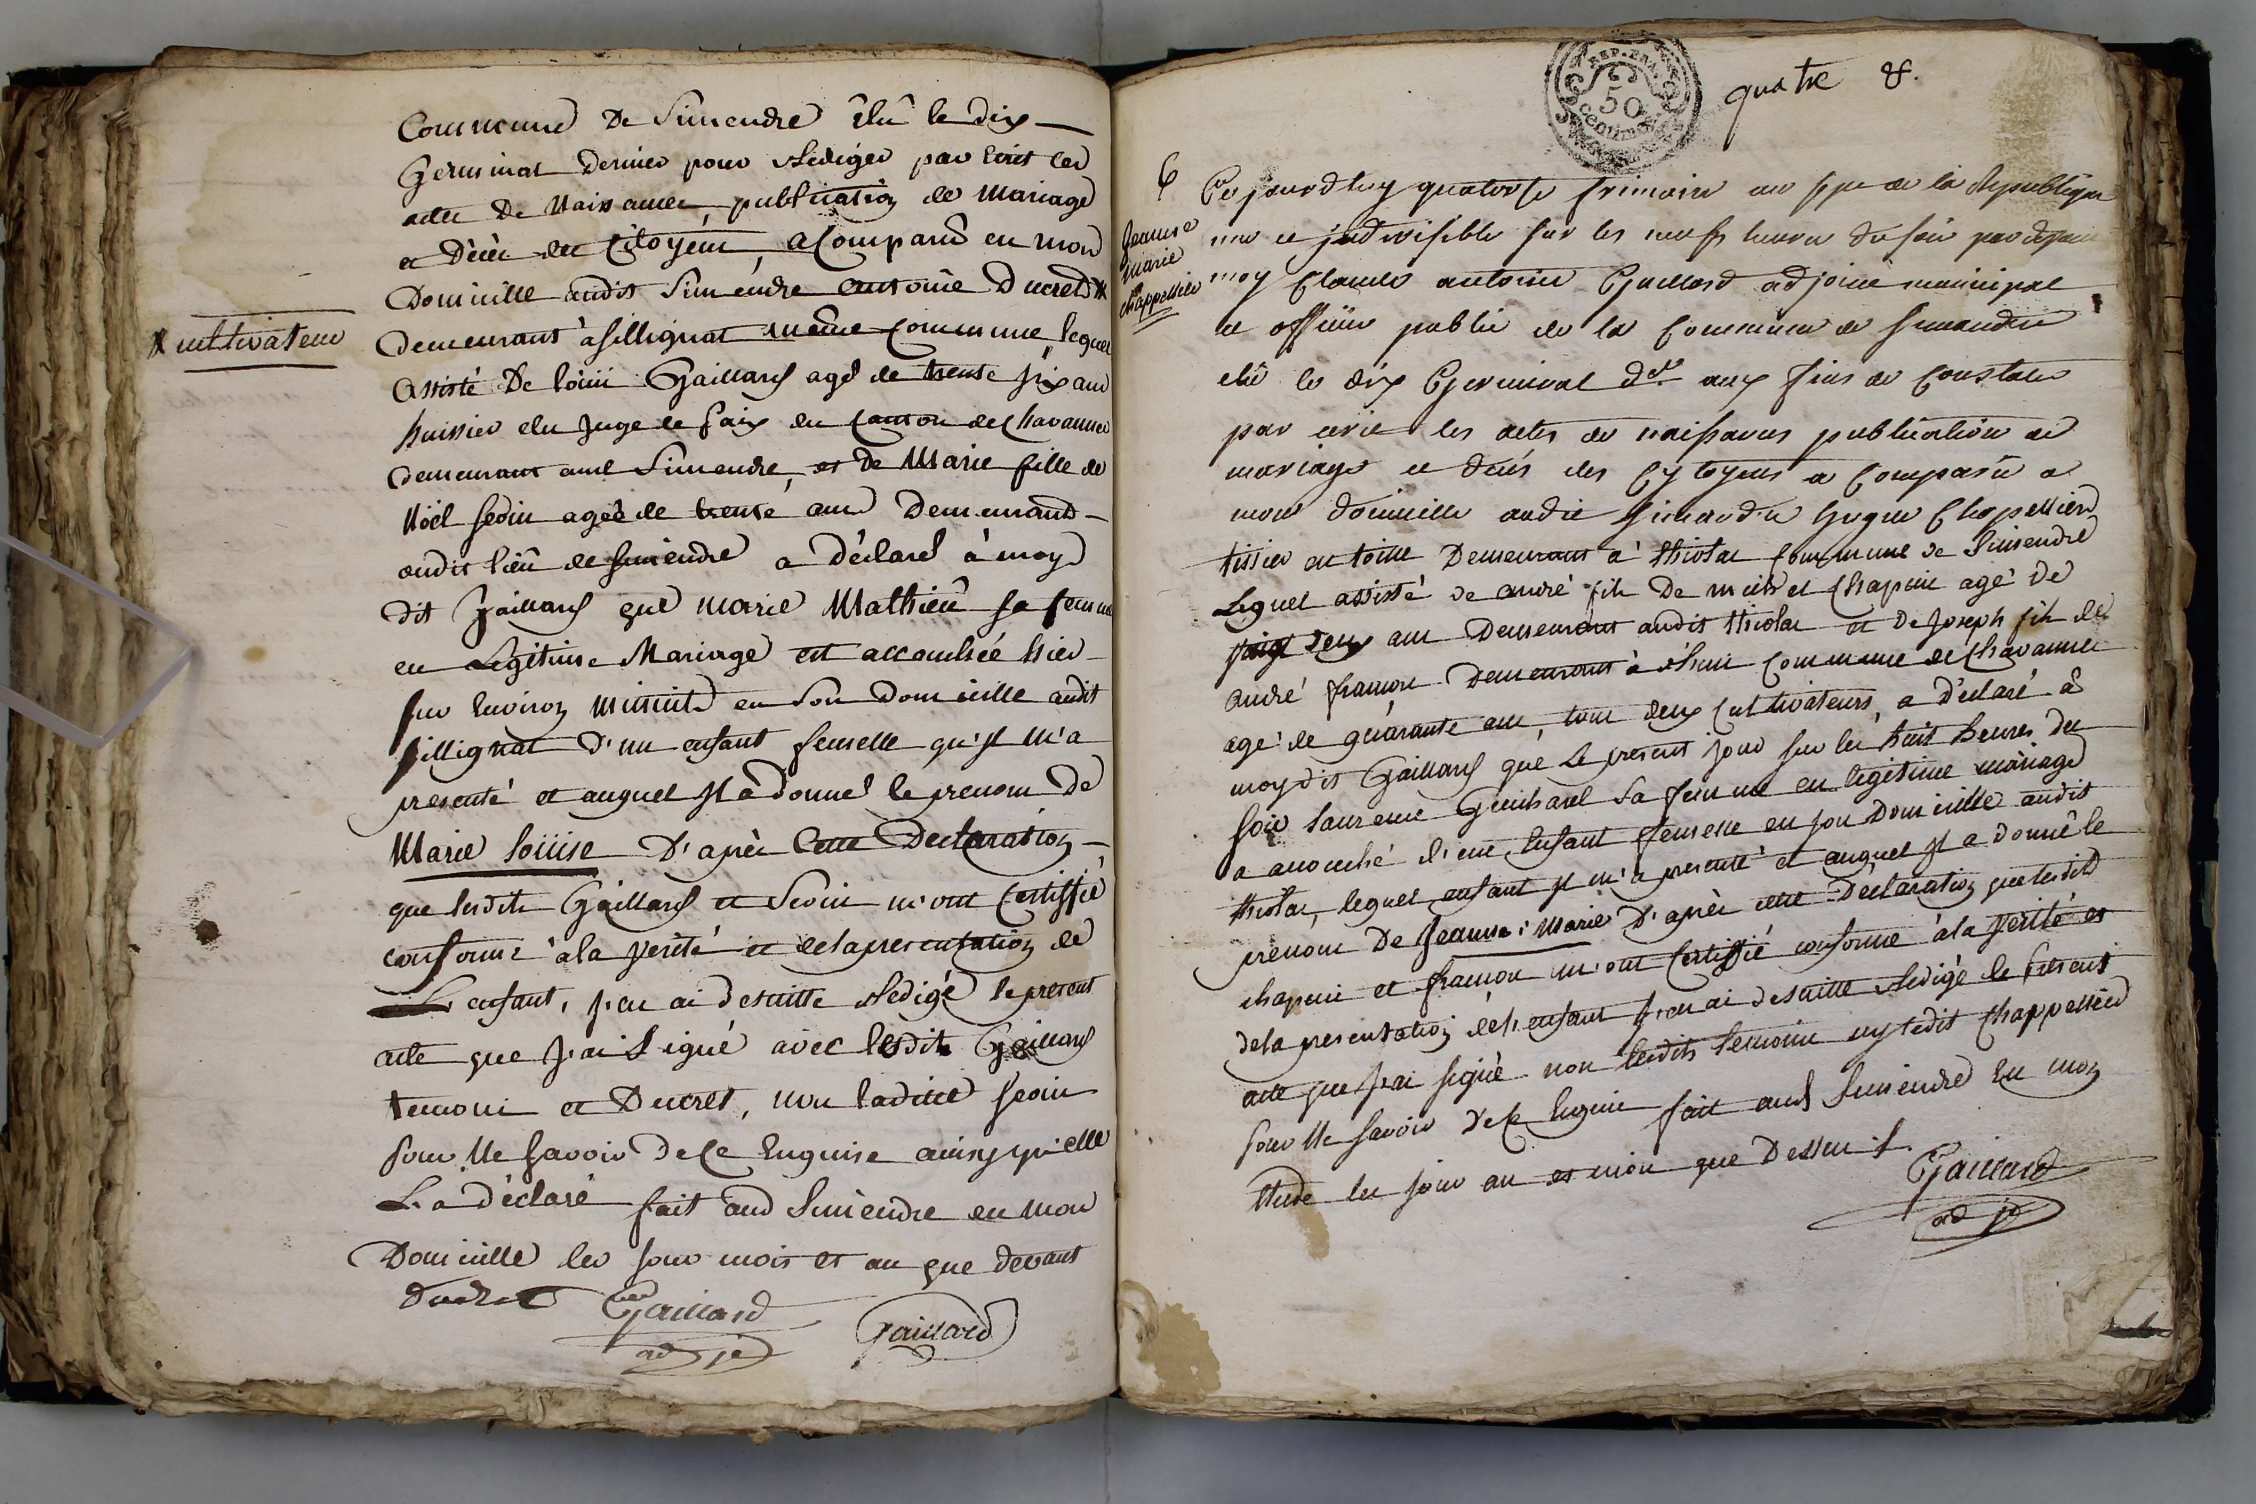 Commune De Simendre êlû le dix
Germinal Dernier pour Rédiger par Ecrit les
actes De Naissances, publication de Mariage
et Décès des Citoyens, a Comparû en mon
Domicille audit Simendre antoine Ducret
cultivateur
Demeurant à Sillignat même commune, lequel
Assisté De Loüis Gaillard agé de trente six ans
huissier du Juge de Paix du Canton de Chavannes
demeurant aud Simendre, et de Marie fille de
Noël Seoin agée de trente ans Demeurand
audit lieu de Simendre a déclaré à moy
dit Gaillard que marie Mathieû sa femme
en Legitime Mariage est accouchée hier
sur Environ Minuit en son Domicille audit
Sillignat d'un enfant femelle qu'Jl m'a
presenté et auquel Jl a Donné le prenom De
Marie Loüise D'après Cette Declaration
que lesdits Gaillard et Seoin m'ont Certiffié
conforme à la vérité et de la presentation de
L'enfant, j'en ai desuitte Rédigé le present
acte que J'ai Signé avec lesdits Gaillard
temoin et Ducret, non ladite Seoin
pour Ne Savoir De Ce Enquise ainsy qu'elle
L'a déclaré fait aud Simendre en mon
Domicille les jour mois et an que devant
Ducret Gaillard Gaillard
adjt
REP. FRA.
50
centimes
quatre
6
Jeanne
marie
chappellier
Ce jourdhuy quatorze frimaire an sept de la Republique
une et jndivisible sur les neufs heures du soir par devant
moy Claude antoine Gaillard adjoint municipal
et officier public de la Commune de Simandre
elû le dix Germinal der aux fins de Constater
par ecrit les actes de naissances publication de
mariage et décés des Cytoyens a Comparû a
mon domicille audit Simandre hugue Chapellier
tissier en toille Demeurant à thiolas Commune de Simendre
Lequel assisté de andré fils De michel Chapuis agé de
vingt deux ans Demeurant audit thiolas et De Joseph fils de
andré framon Demeurant à Commune de Chavannes
agé de quarante ans, tous deux Cultivateurs, a déclaré à
moy dit Gaillard que le present jour sur les huit heures du
soir Laurence Guichard sa femme en legitime mariage
a accouché d'une Enfant femelle en son Domicille audit
thiolas, lequel enfant Jl m'a presenté et auquel Jl a donné le
prenom De Jeanne Marie D'après cette Déclaration que lesdits
chapuis et framon m'ont Certiffié conforme à la verité et
de la presentation de l'enfant J'en ai desuitte Rédigé le Present
acte que J'ai signé non lesdits temoins ny ledit Chappellier
pour Ne Savoir De Ce Enquis fait aud Simendre En mon
Etude les jour an et mois que Dessus
Gaillard
adjt